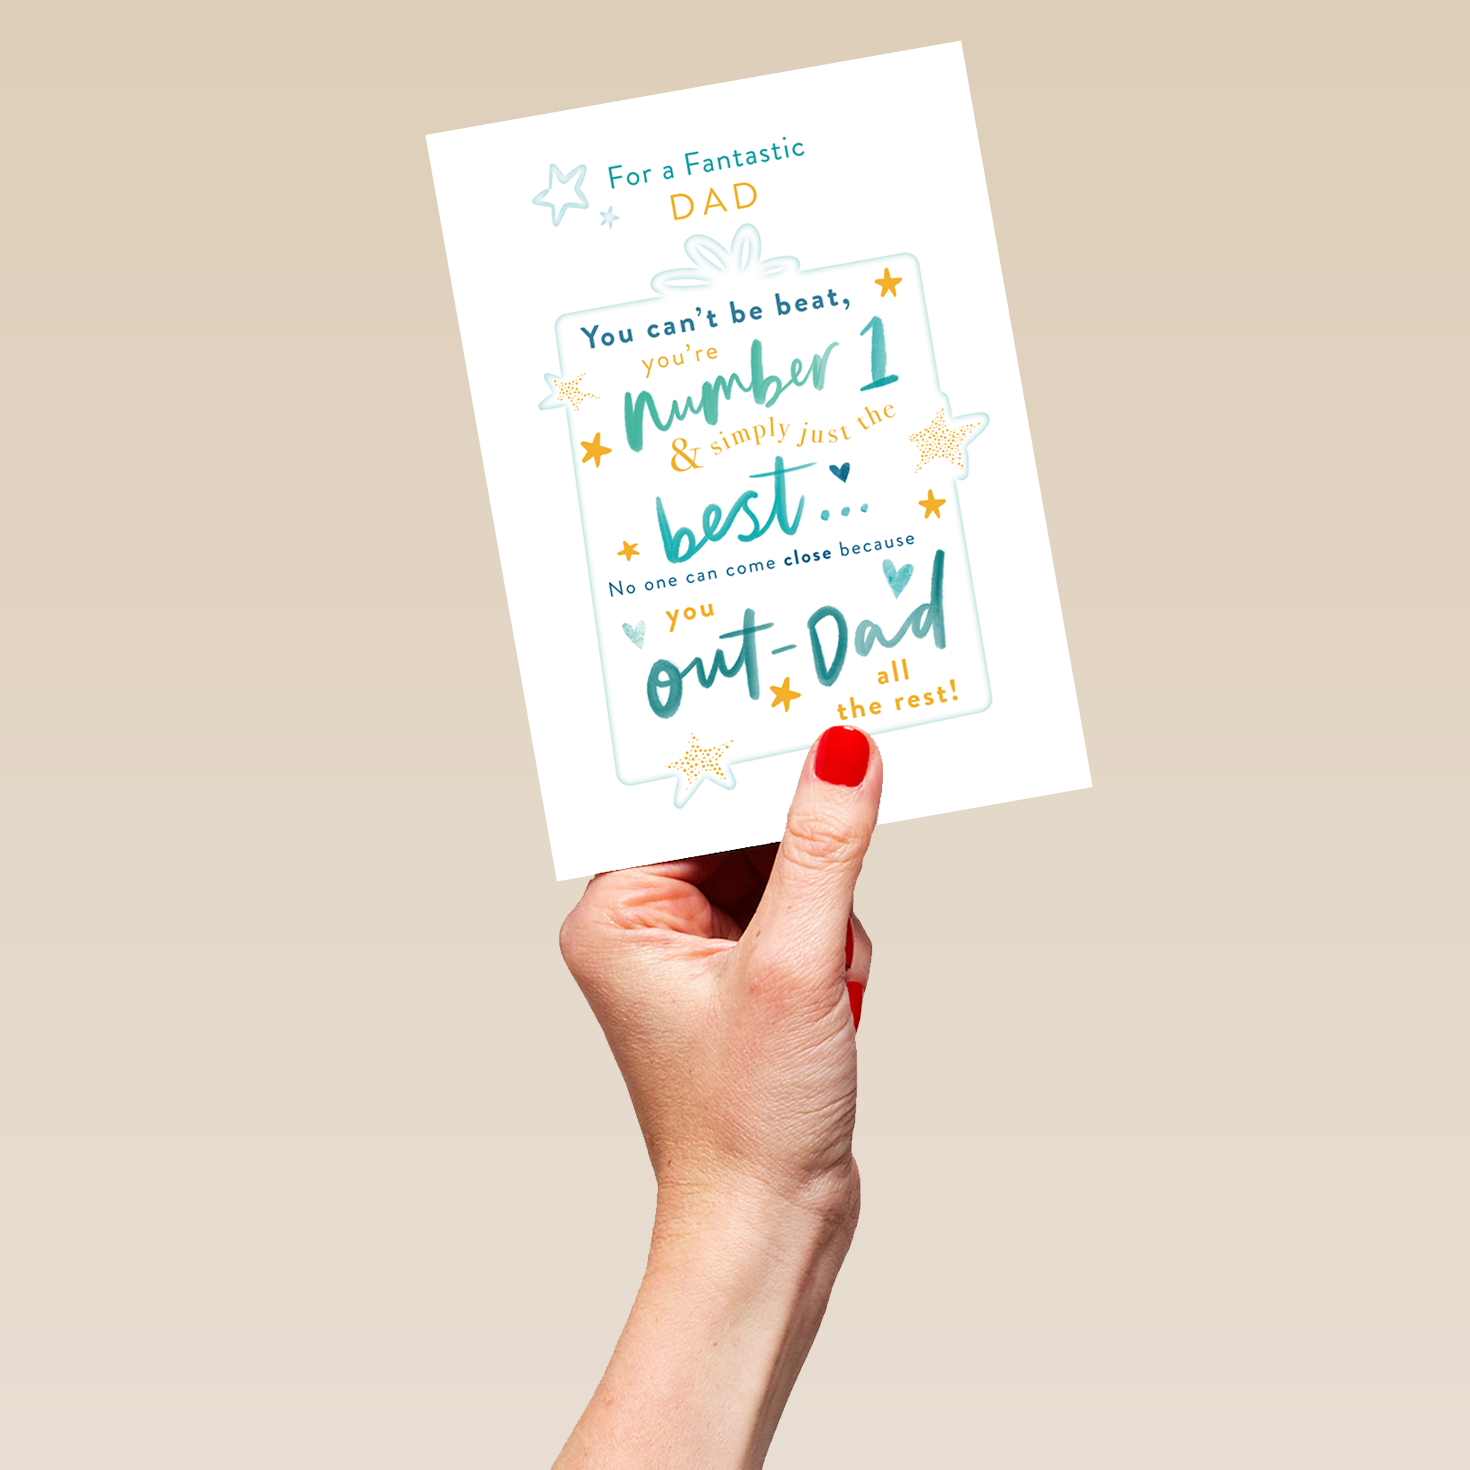 For a Fantastic
DAD
You can't be beat,
you're
number 1
& simply just the
best...
No one can come close because
you
out-Dad
all
the rest!